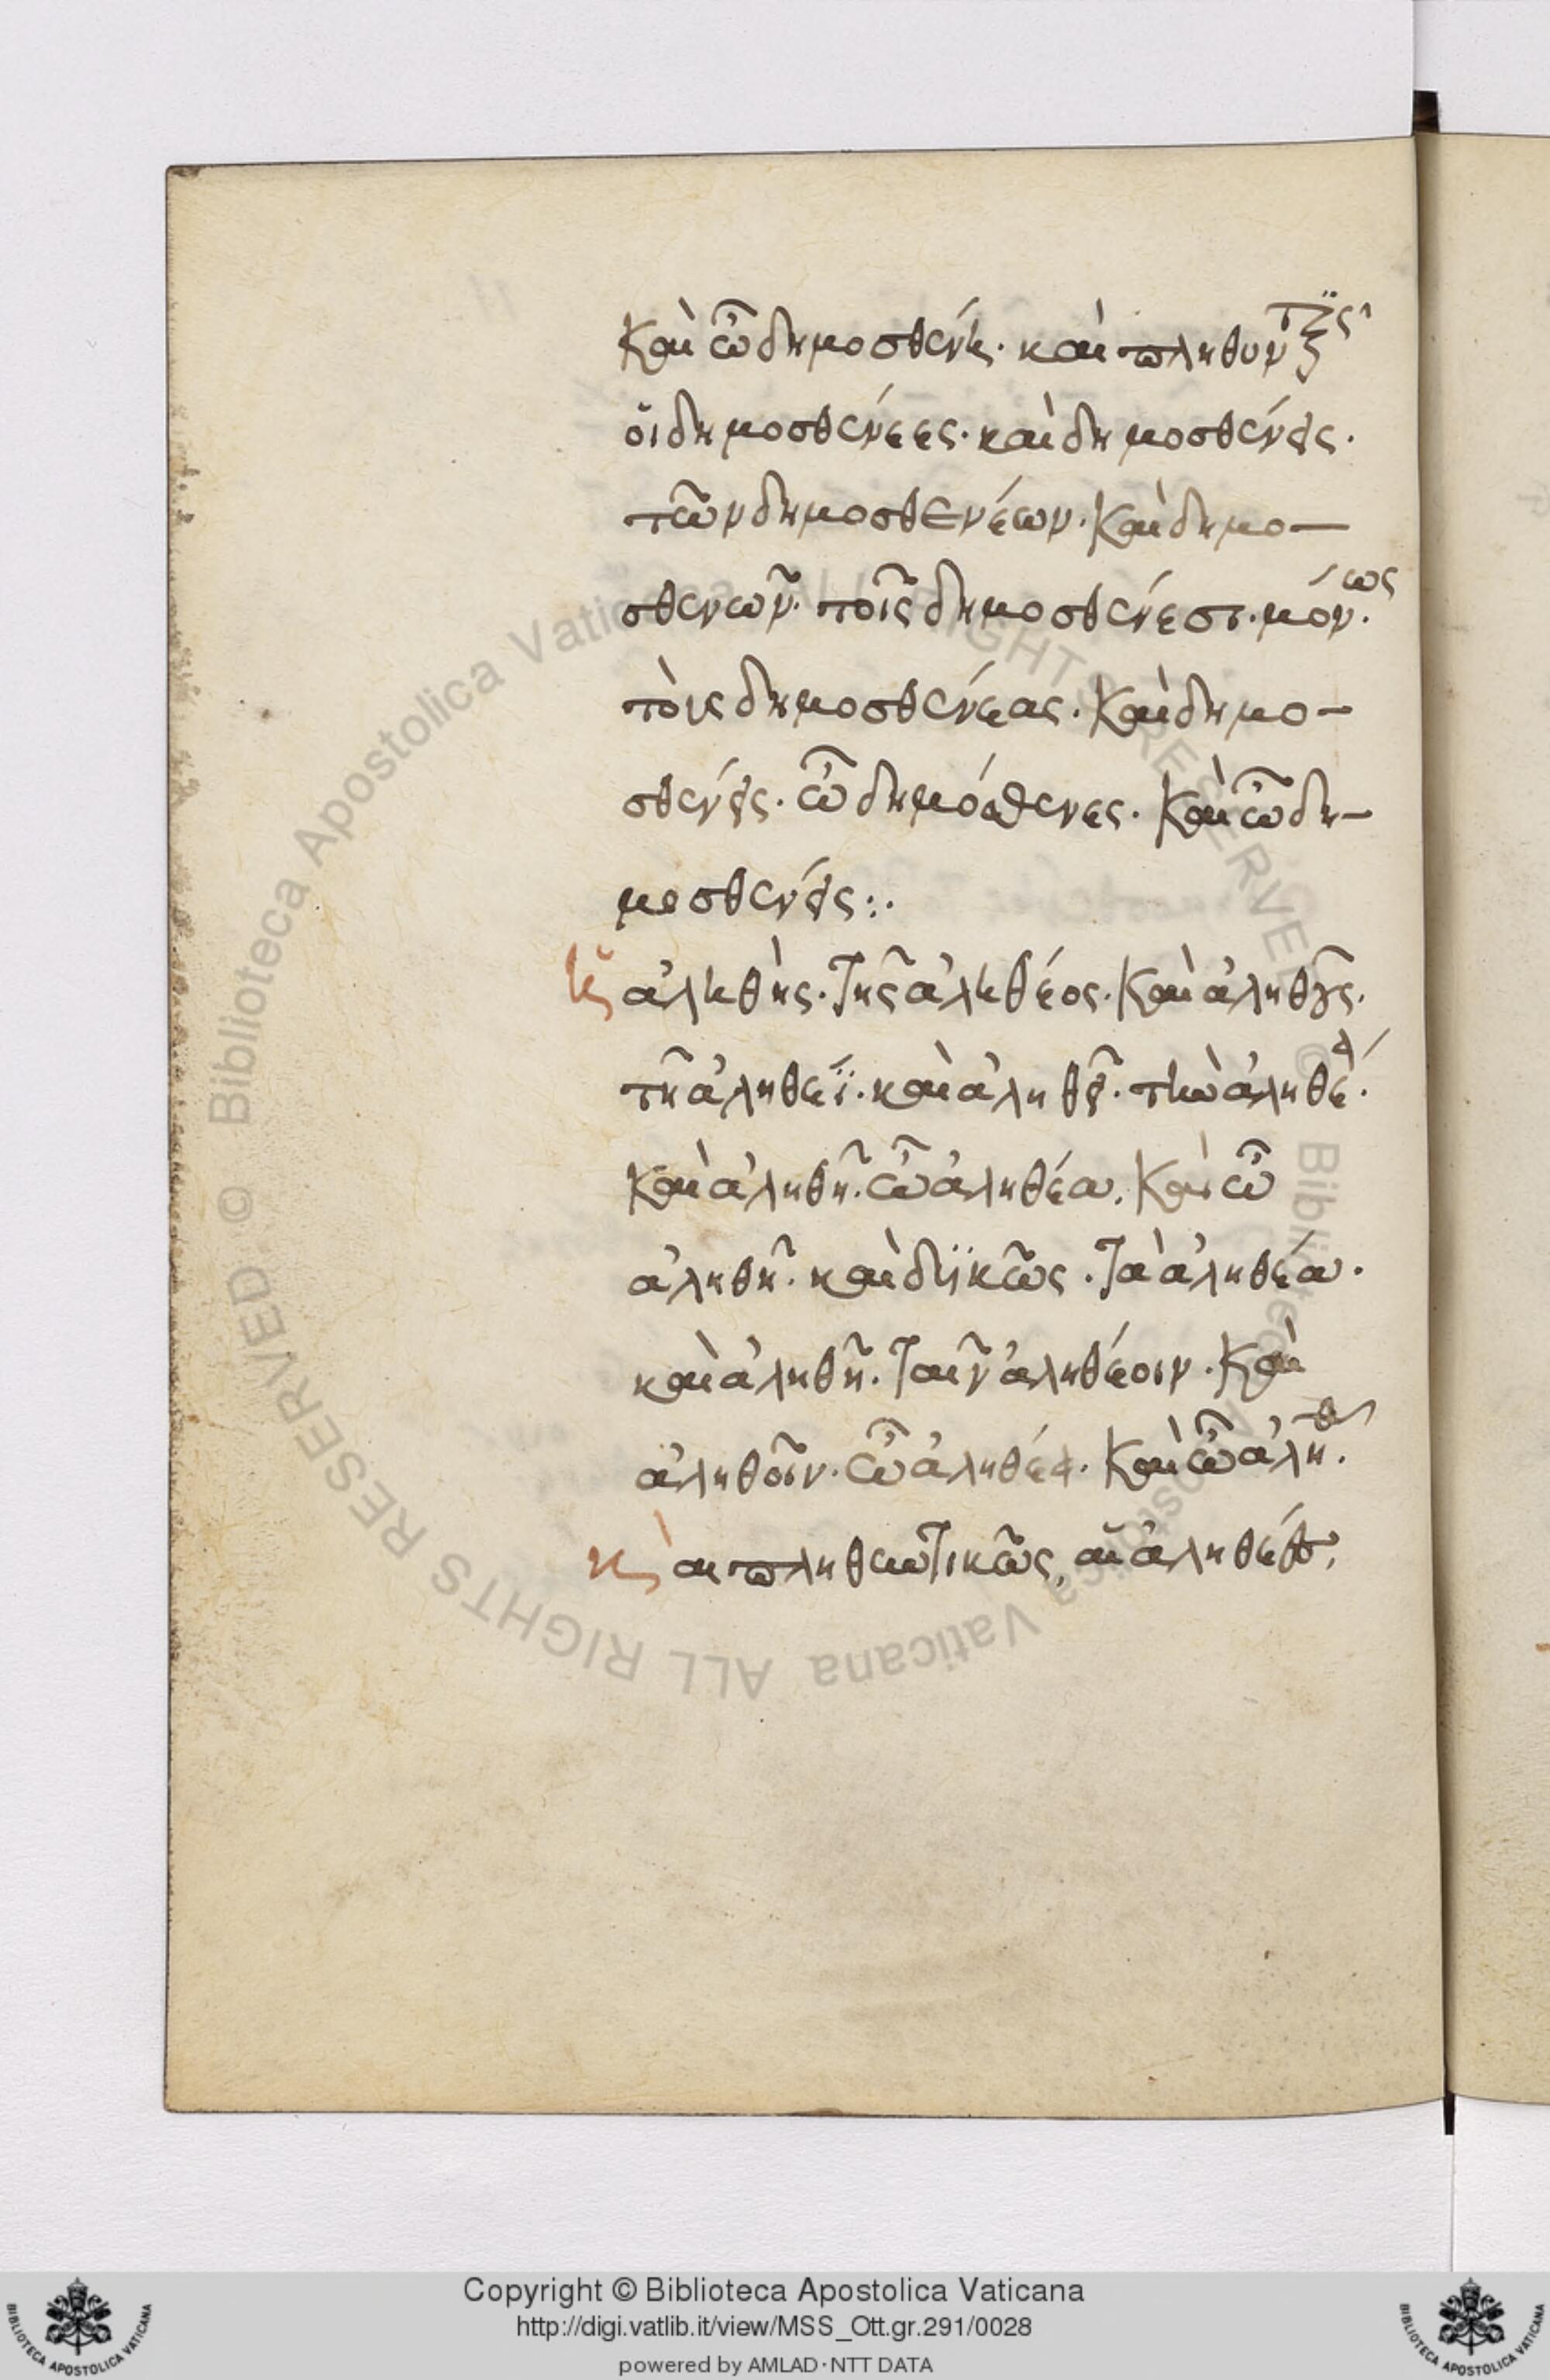 Καὶ ὦ δημοσθένη· καὶ πληθυντικῶς
οἱ δημοσθένεες· καὶ δημοσθένεις·
τῶν δημοσθενέων· καὶ δημο-
σθενῶν· τοῖς δημοσθένεσι· μόνως·
τοὺς δημοσθένεας· καὶ δημο-
σθένεις· ὦ δημόσθενες· καὶ ὦ δη-
μοσθένεις:.
ἀληθὴς· τῆς ἀληθέος· καὶ ἀληθοῦς·
τῆ ἀληθέϊ· καὶ ἀληθεῖ· τὴν ἀληθέα·
καὶ ἀληθῆ· ὦ ἀληθέα· καὶ ὦ
ἀληθῆ· καὶ δυϊκῶς· τὰ ἀληθέα·
καὶ ἀληθῆ· ταῖν ἀληθέοιν· καὶ
ἀληθοῖν· ὦ ἀληθέε· καὶ ὦ ἀληθῆ·
καὶ πληθυντικῶς, αἱ ἀληθέες,
Copyright © Biblioteca Apostolica Vaticana
http://digi.vatlib.it/view/MSS_Ott.gr.291/0028
powered by AMLAD·NTT DATA
BIBLIOTECA APOSTOLICA VATICANA
BIBLIOTECA APOSTOLICA VATICANA
© Biblioteca Apostolica Vaticana ALL RIGHTS RESERVED
© Biblioteca Apostolica Vaticana ALL RIGHTS RESERVED